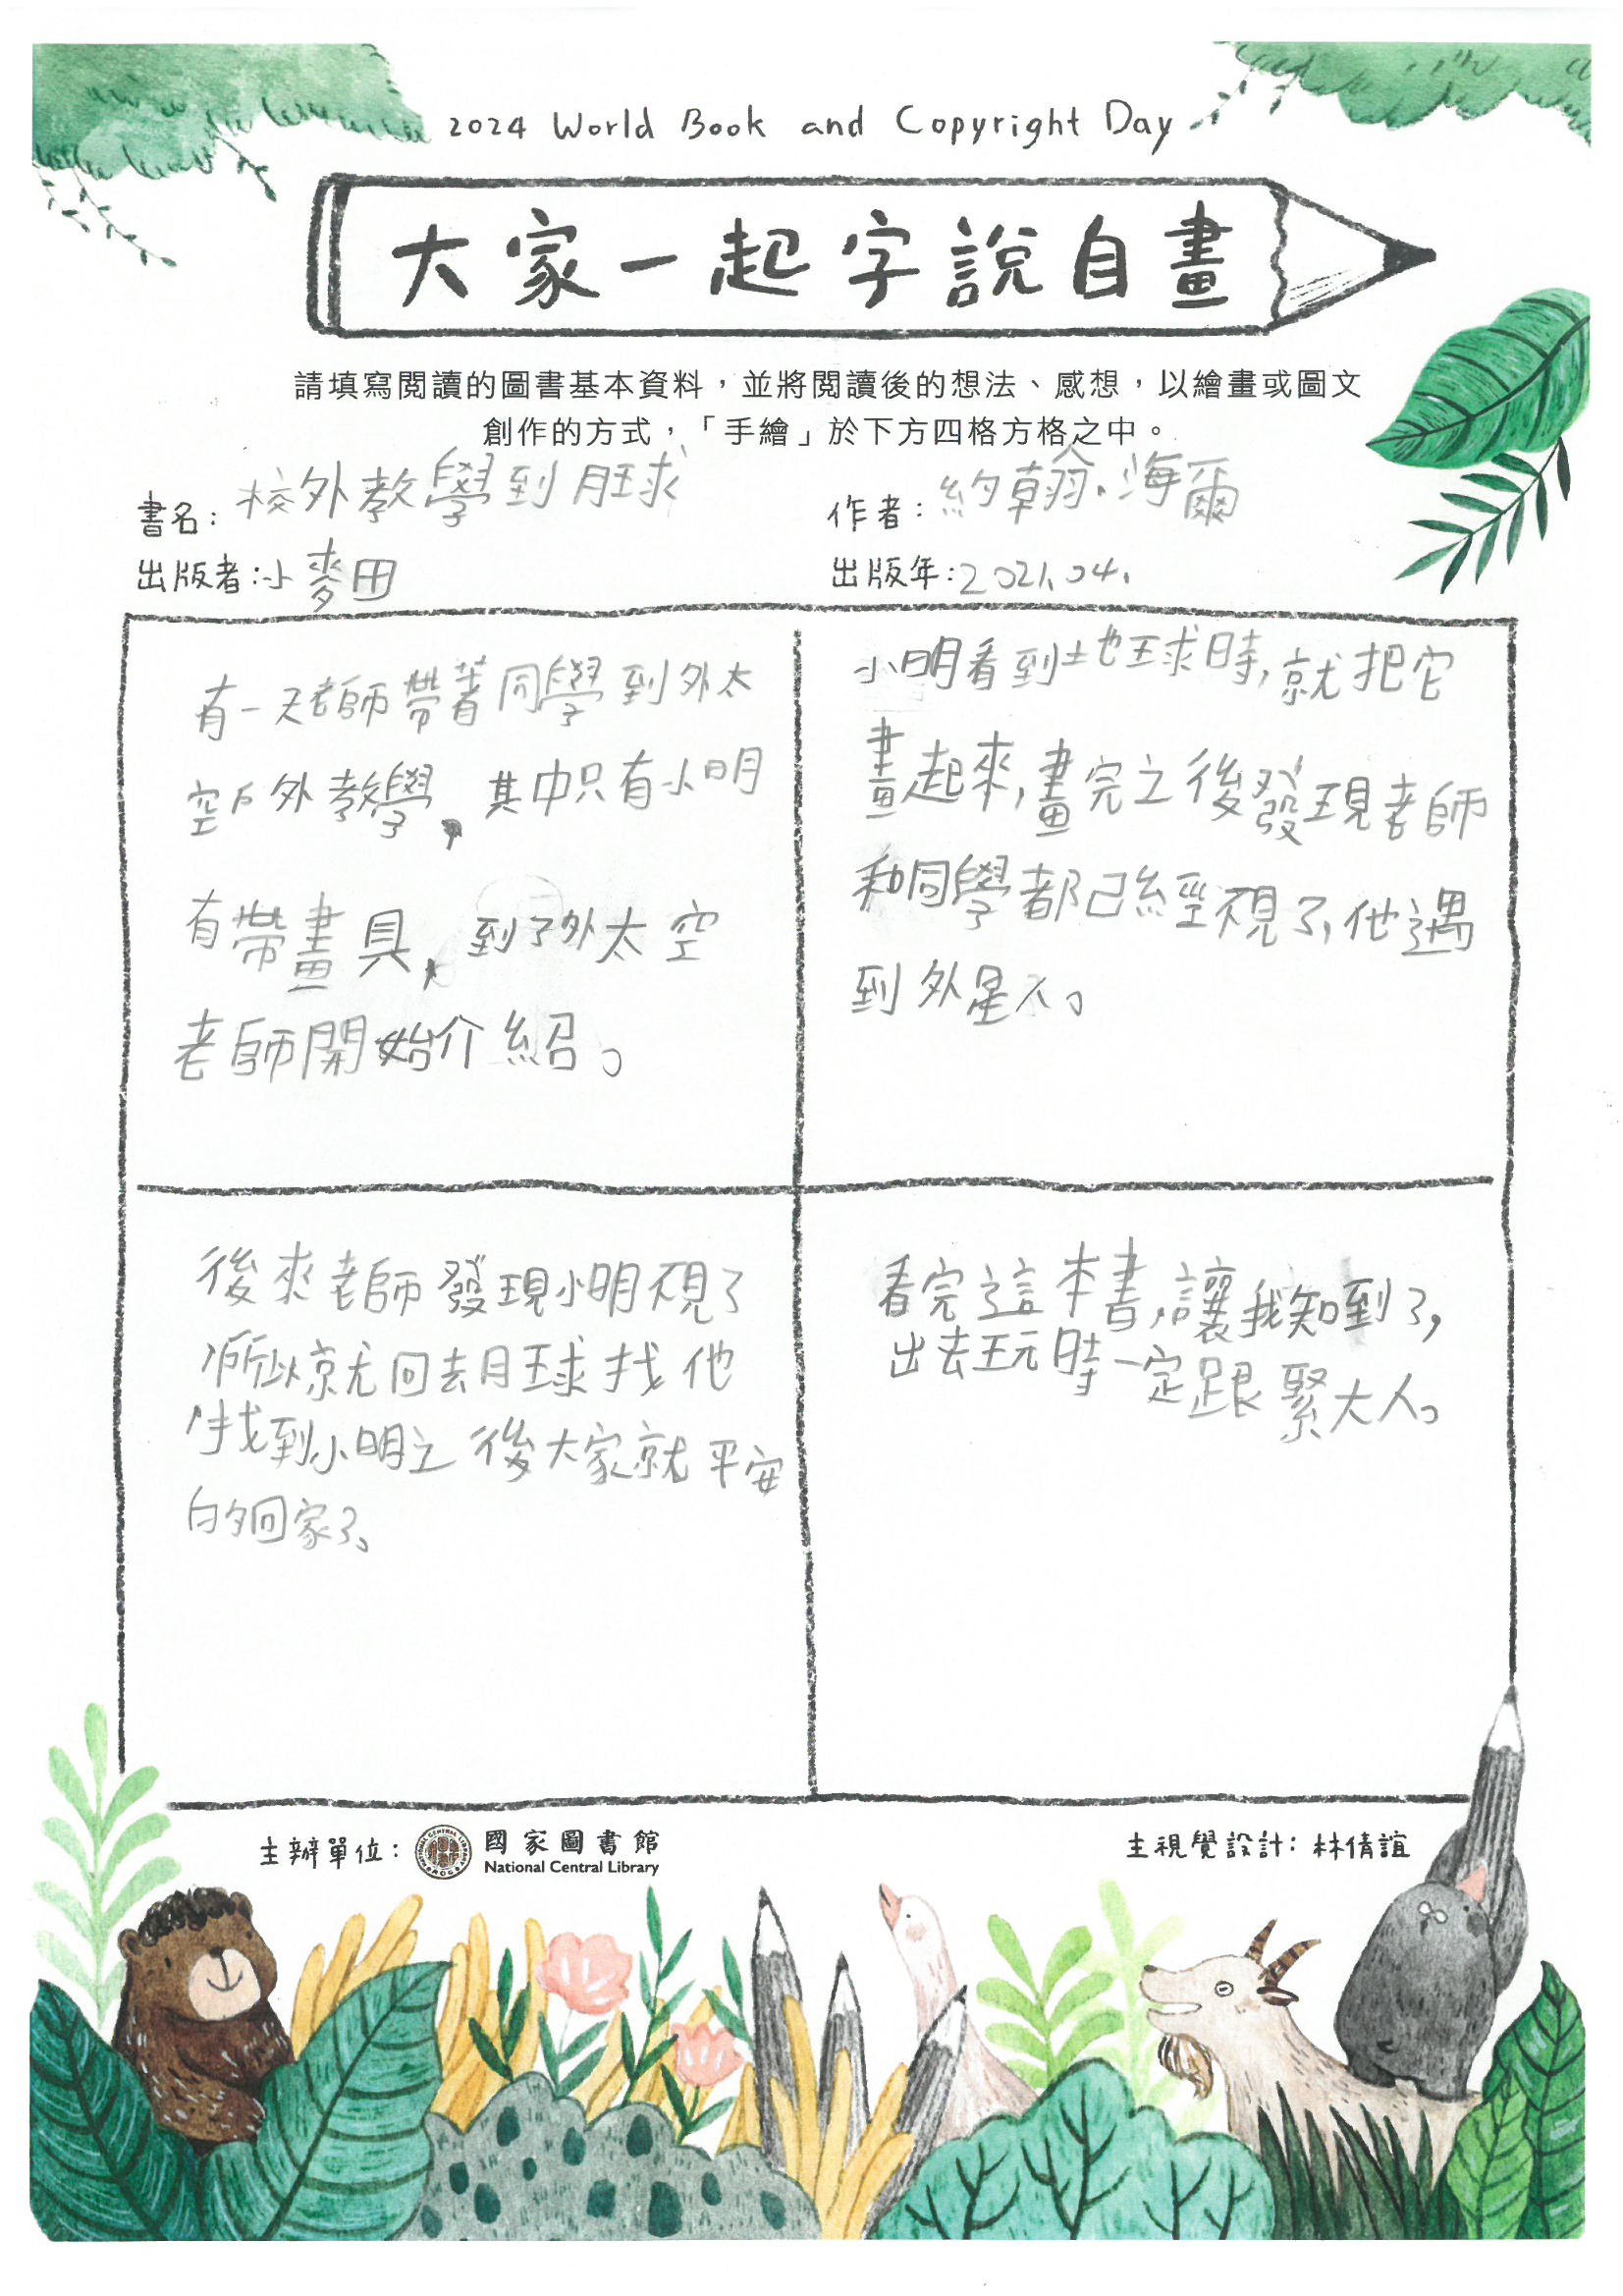 2024 World Book and Copyright Day
大家一起字說自畫
請填寫閱讀的圖書基本資料，並將閱讀後的想法、感想，以繪畫或圖文
創作的方式，「手繪」於下方四格方格之中。
書名：校外教學到月球
作者：約翰·海爾
出版者：小麥田
出版年：2021.04.
有一天老師帶著同學到外太
空戶外教學，其中只有小明
有帶畫具，到了外太空
老師開始介紹。
小明看到地球時，就把它
畫起來，畫完之後發現老師
和同學都已經不見了，他遇
到外星人。
後來老師發現小明不見了
所以就回去月球找他
找到小明之後大家就平安
的回家了。
看完這本書，讓我知到了，
出去玩時一定跟緊大人。
主辦單位：國家圖書館
National Central Library
主視覺設計：林倩誼